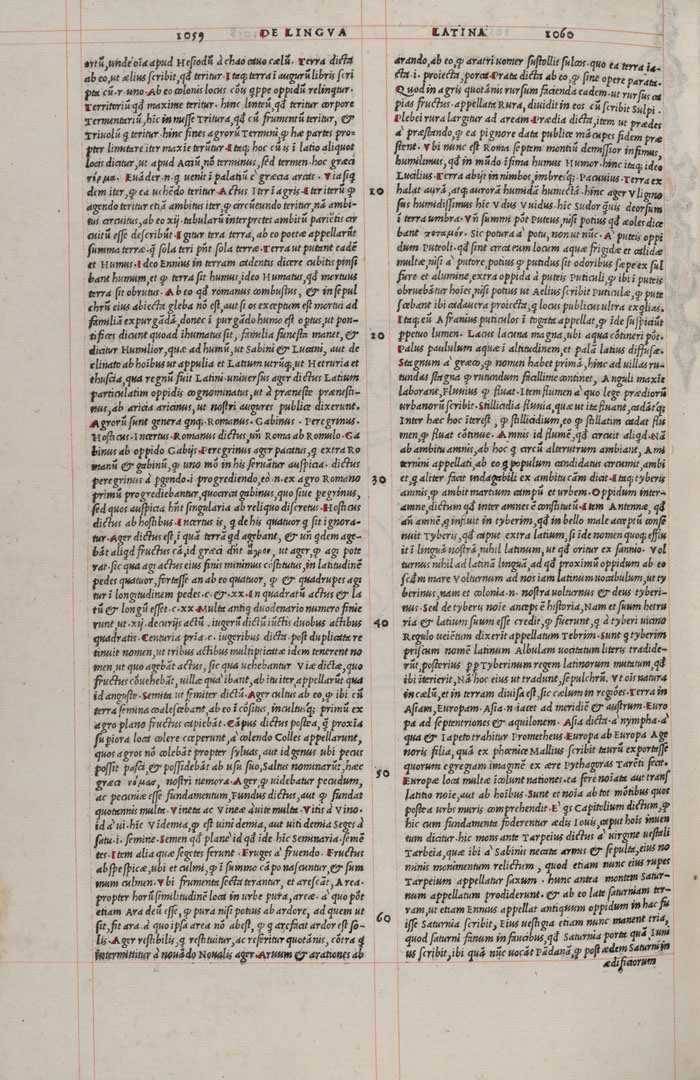 1059 DE LINGVA
ortū, unde oīa apud Hesiodū à chao cauo cælū. Terra dicta
ab eo, ut ælius scribit, qd teritur. Itaq; terra ī augurū libris scri
pta cū. r. uno. Ab eo colonis locus cōis qppe oppidū relinqtur.
Territoriū qd maxime teritur. hinc linteū qd teritur corpore
Termentariū, hic in messe Tritura, qd tū frumentū teritur, &
Triuolū q teritur. hinc fines agrorū Termini, q hæ partes pro-
pter limitare iter maxīe terūtur. Itaq; hoc cū is ī latio aliquot
locis dicitur, ut apud Acciū, nō terminus, sed termen. hoc græci
τέρμα. Euāder. n. q uenit ī palatiū è græcia arcas. Via siq
dem iter, q ea uehēdo teritur. Actus Iter ī agris. Iter iterū q
agendo teritur etiā ambitus iter, q circueundo teritur, nā ambi-
tus circuitus, ab eo xij. tabularū interpretes ambitū parietis cir
cuitū esse describūt. Igitur tera terra, ab eo poetæ appellarūt
summa terræ. q sola teri pnt sola terræ. Terra ut putant eadē
et Humus. Ideo Ennius in terram cadentis dicere cubitis pinsi
bant humum, et q terra sit humus, ideo Humatus, qd mortuus
terra sit obrutus. Ab eo qd romanus combustus, & in sepul
chrū eius abiecta gleba nō est, aut si os exceptum est mortui ad
familiā expurgādā, donec ī purgādo humo est optus, ut pon-
tifices dicunt quoad ihumatus sit, familia funesta manet, &
dicitur Humilior, quæ ad humū, ut Sabini & Lucani, aut de
clinato ab hoībus ut appulia et Latium utrūq; ut Hetruria et
thuscia, qua regnū fuit Latini. uniuersus ager dictus Latium
particulatim oppidis cognominatus, ut à præneste prænesti-
nus, ab aricia aricinus, ut nostri augures publice dixerunt.
Agrorū sunt genera qnq;. Romanus. Gabinus. Peregrinus.
Hosticus. Incertus. Romanus dictus, uñ Roma ab Romulo. Ga
binus ab oppido Gabijs. Peregrinus ager pacatus, q extra Ro
manū & gabinū, q uno mō in his seruātur auspicia. dictus
peregrinus à pgendo. i progrediendo, eò. n. ex agro Romano
primū progrediebantur, quocirca gabinus, quo siue pegrinus,
sed quos auspicia hñt singularia ab reliquo discretus. Hosticus
dictus ab hostibus. Incertus is, q de his quatuor q sit ignora-
tur. Ager dictus est, ī quā terrā qd agebant, & un qdem age-
bāt aliqd fructus cā, id græci dnt ἀγρὸν, ut ager, q agi pote
rat. sic qua agi actus eius finis minimus cōstitutus, in latitudinē
pedes quatuor, fortasse an ab eo quatuor, q & quadrupes agi
tur ī longitudinem pedes. c. & xx. In quadratū actus & la
tū & longū esset. c. xx. Multa antiq duodenario numero finie
runt, ut. xij. decurijs actū. iugerū dictū iūctis duobus actibus
quadratis. Centuria prīa. c. iugeribus dicta. post duplicata re
tinuit nomen, ut tribus actibus multiplicatæ idem tenerent no
men, ut quo agebāt actus, sic qua uehebantur Viæ dictæ, quo
fructus cōuehebāt, uillæ qua ibant, ab itu iter, appellarūt qua
id anguste. Semita ut semiter dictū. Ager cultus ab eo, q ibi cū
terra semina coalescebant, ab eo ī cōsitus, incultusq; primū ex
agro plano fructus capiebāt. Cāpus dictus postea, q proxīa
supiora loca colere cœperunt, à colendo Colles appellarunt,
quos agros nō colebāt propter syluas, aut id genus ubi pecus
possit pasci, & possidebāt ab usu suo, Saltus nominarūt, hæc
græci νέμος, nostri nemora. Ager q uidebatur pecudum,
ac pecuniæ esse fundamentum, Fundus dictus, aut q fundat
quotannis multa. Vineta ac Vineæ à uite multa. Vitis à Vino.
id à ui. hīc Vīdemia, q est uini demia, aut uiti demia Seges à
satu. i. semine. Semen qd planè id qd īde. hīc Seminaria. semē
tes. Item alia quæ segetes ferunt. Fruges à fruendo. Fructus
ab spe spicæ, ubi et culmi, q ī summo cāpo nascuntur, & sum
mum culmen. Vbi frumenta secta terantur, et arescāt, Area.
propter horū similitudinē loca in urbe pura, areæ. à quo pōt
etiam Ara deū esse, q pura nisi potius ab ardore, ad quem ut
sit, fit ara. à quo ipsa area nō abest, q q arefacit ardor est so-
lis. Ager restibilis, q restituitur, ac reseritur quotānis, cōtra q
intermittitur à nouādo Noualis ager. Aruum & arationes ab
10
20
30
40
50
60
LATINA 1060
arando, ab eo, q aratri uomer sustollit sulcos. quo ea terra ia-
cta. i. proiecta, porca. Prata dicta ab eo, q sine opere parata.
Quod in agris quotānis rursum facienda eadem, ut rursus ca
pias fructus. appellata Rura, diuidit in eos cū scribit Sulpi.
Plebei rura largitur ad aream. Prædia dicta, item ut prædes
à præstando, q ea pignore data publice mācupes fidem præ
stent. Vbi nunc est Roma septem montiū demissior infimus,
humilimus, qd in mūdo īfima humus Humor. hinc itaq; ideo
Lucilius. Terra abijt in nimbos, imbresq;. Pacuuius. Terra ex
halat aurā, atq; aurorā humidā humectā. hinc ager Vligino
sus humidissimus hic Vdus Vuidus. hīc Sudor quis deorsum
ī terra umbra. Vñ summi pōt Puteus, nisi potius qd æoles dice
bant ποταμόν. Sic potura à potu, non ut nūc. A' puteis oppi
dum Puteoli. qd sint circa eum locum aquæ frigidæ et calidæ
multæ, nisi à putore, potius q putidus sit odoribus sæpe ex sul
fure et alumine, extra oppida à puteis Puticuli, q ibi ī puteis
obruebātur hoīes, nisi potius ut Aelius scribit Puticulæ, q pute
scebant ibi cadauera proiecta, q locus publicus ultra exqlias.
Itaq; eū Afranius puticulos ī togata appellat, q īde suspiciūt
ppetuo lumen. Lacus lacuna magna, ubi aqua cōtineri pōt.
Palus paululum aquæ ī altitudinem, et palā latius diffusæ.
Stagnum à græco, q nomen habet primā, hinc ad uillas ru-
tundas stagna q rutundum facillime continet, Anguli maxīe
laborant. Fluuius q fluat. Item flumen à quo lege prædiorū
urbanorū scribit. Stillicidia fluuia, quæ ut ita fluant, cadātq;
Inter hæc hoc īterest, q stillicidium, eo q stillatim cadat flu
men, q fluat cōtinue. Amnis id flumē, qd circuit aliqd. Nā
ab ambitu amnis, ab hoc q circū alterutrum ambiant, Ami
ternini appellati, ab eo q populum candidatus circumit, ambi
et, q aliter facit indagabili ex ambitu cām dicat. Itaq; tyberis
amnis, q ambit martium campū et urbem. Oppidum inter-
amne, dictum qd inter amnes ē constitutū. Item Antennæ, qd
añ amnē, q infuit in tyberim, qd in bello male acceptū consē
nuit Tyberis, qd caput extra latium, si īde nomen quoq; efflu
it ī linguā nostrā nihil latinum, ut qd oritur ex samnio. Vol
turnus nihil ad latinā linguā, ad qd proximū oppidum ab eo
scdm mare Volturnum ad nos iam latinum uocabulum, ut ty
berinus, nam et colonia. n. nostra uolturnus & deus tyberi-
nus. Sed de tyberis noīe anceps ē historia, Nam et suum hetru
ria et latium suum esse credit, q fuerunt, q à tyberi uicino
Regulo ueiētum dixerīt appellatum Tebrim. Sunt q tyberim
priscum nomē latinum Albulam uocitatum literis tradide-
rūt, posterius pp Tyberinum regem latinorum mutatum, qd
ibi īterierit, Nā hoc eius ut tradunt, sepulchrū. Vt oīs natura
in cælū, et in terram diuisa est, sic cælum in regiōes. Terra in
Asiam, Europam. Asia. n. iacet ad meridiē & austrum. Euro
pa ad septentriones & aquilonem. Asia dicta à nympha. à
qua & Iapeto trahitur Prometheus. Europa ab Europa Age
noris filia, quā ex phœnice Mallius scribit taurū exportasse
quorum egregiam imaginē ex ære Pythagoras Tarēti fecit.
Europæ loca multæ īcolunt nationes. ea ferè noīata aut trans
latitio noīe, aut ab hoībus. Sunt et noīa ab tot mōtibus quos
postea urbs muris comprehendit. E' qs Capitolium dictum, q
hic cum fundamenta foderentur ædis Iouis, caput hoīs inuen
tum dicitur. hic mons ante Tarpeius dictus à uirgine uestali
Tarbeia, quæ ibi à Sabinis necata armis & sepulta, eius no
minis monimentum relictum, quod etiam nunc eius rupes
Tarpeium appellatur saxum. hunc antea montem Satur-
num appellatum prodiderunt. & ab eo late saturniam ter-
ram, ut etiam Ennius appellat antiquum oppidum in hac fu
isse Saturnia scribit, Eius uestigia etiam nunc manent tria,
quod saturni fanum in faucibus, qd Saturnia porta quā Iuni
us scribit, ibi quā nūc uocāt Pādanā, q post ædem Saturni in
ædificiorum